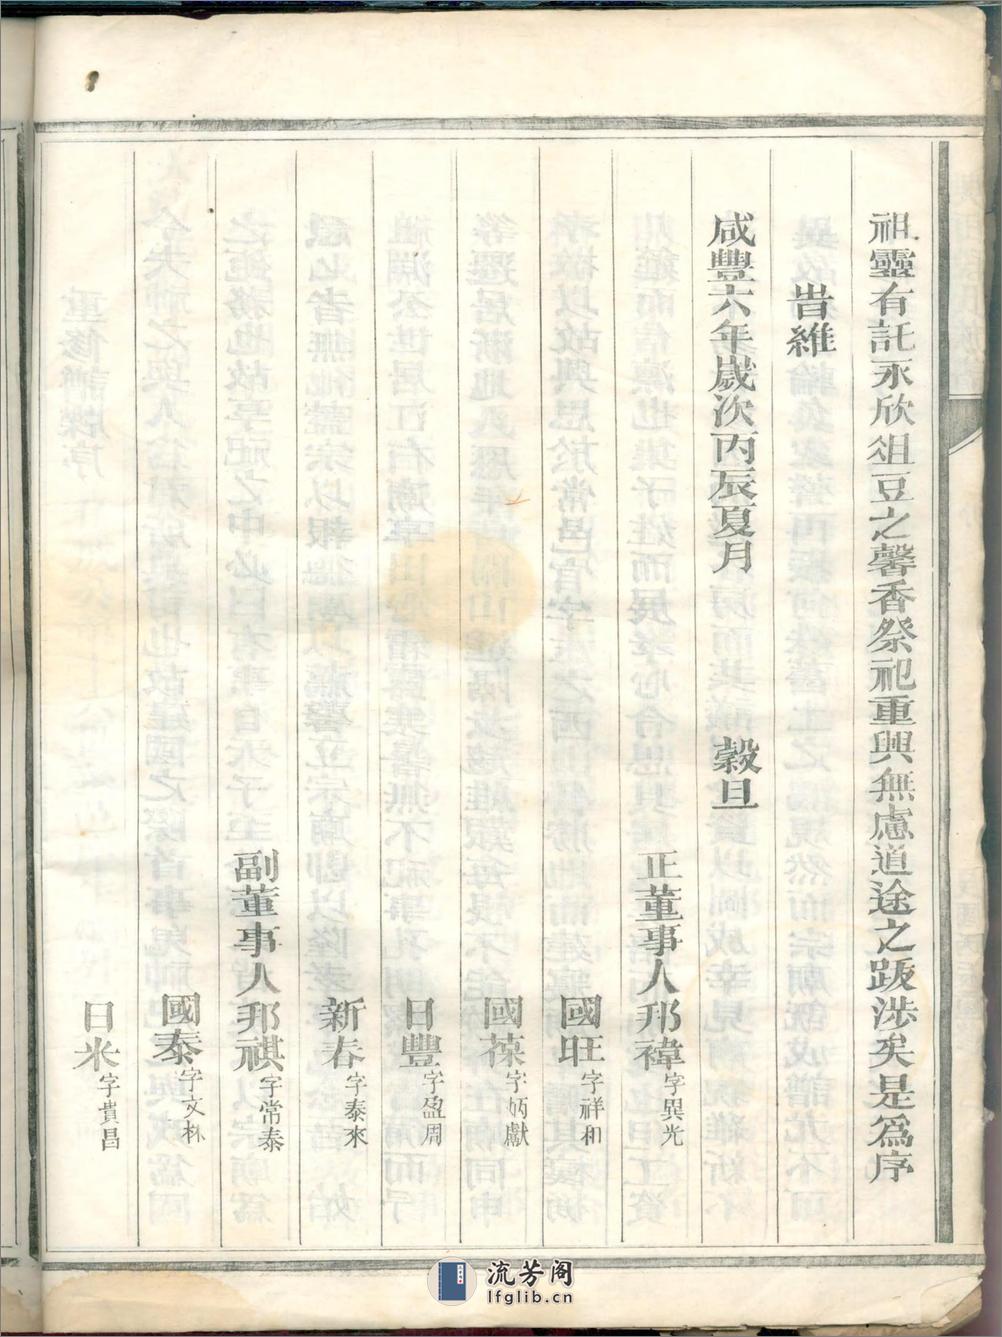 祖靈有託永欣俎豆之馨香祭祀重興無慮道途之跋涉矣是爲序
旹維
咸豐六年歲次丙辰夏月 穀旦
正董事人邦禕字異光
國旺字祥和
國葆字炳獻
日豐字盈周
新春字泰來
副董事人邦祺字常泰
國泰字文林
日米字貴昌
流芳阁
lfglib.cn